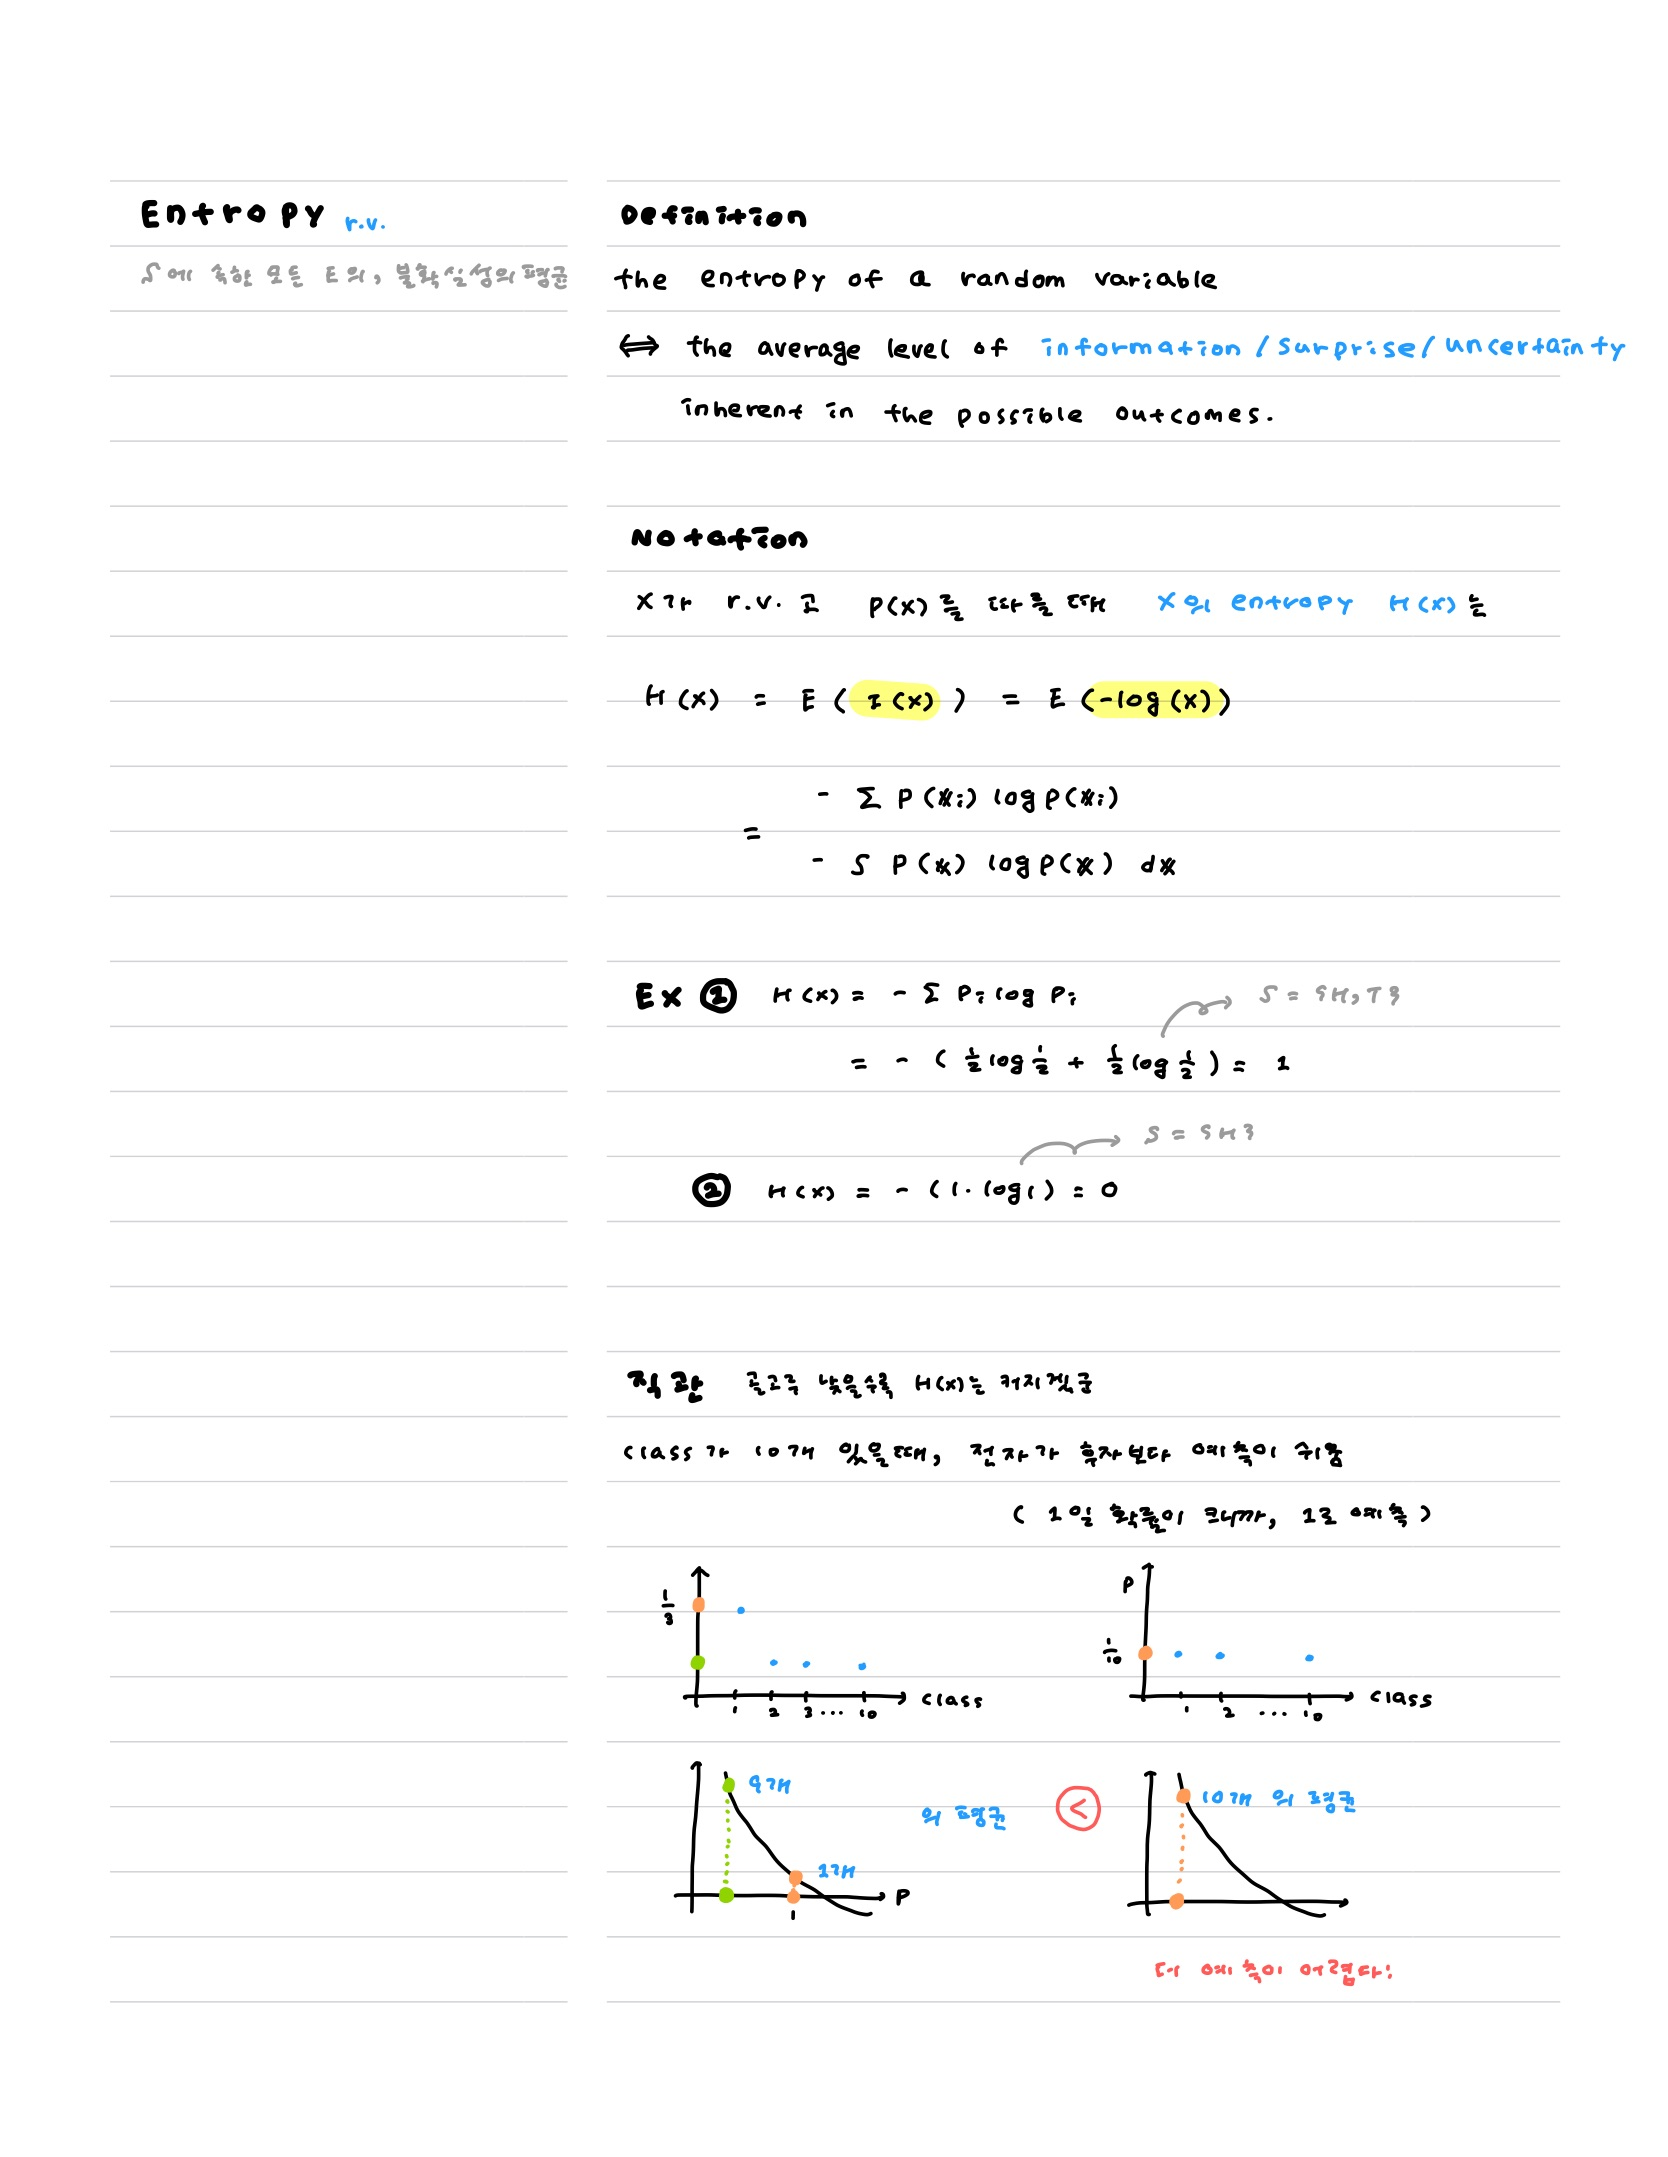 Entropy r.v.
S에 속한 모든 E의, 불확실성의 평균
Definition
the entropy of a random variable
⟺ the average level of information / surprise / uncertainty
inherent in the possible outcomes.
Notation
X가 r.v. 고 P(X)를 따를 때 X의 entropy H(X)는
H(X) = E ( I(X) ) = E (-log(X))
- Σ P(xi) log P(xi)
=
- ∫ P(x) log P(x) dx
Ex ① H(X) = - Σ Pi log Pi
S = {H,T}
= - ( 1/2 log 1/2 + 1/2 log 1/2 ) = 1
S = {H}
② H(X) = - (1 · log 1) = 0
직관 골고루 낮을수록 H(X)는 커지겠군
class가 10개 있을때, 전자가 후자보다 예측이 쉬움
( 1일 확률이 크니까, 1로 예측 )
1/3
1 2 3 ... 10 class
P
1/10
1 2 ... 10 class
9개
1개
1
P
의 평균
<
10개 의 평균
더 예측이 어렵다!